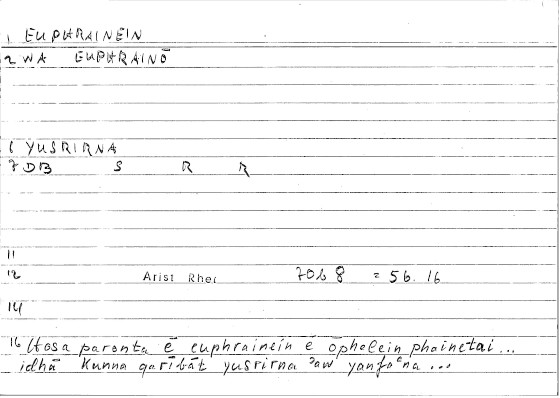 1 EUPHRAINEIN
2 WA EUPHRAINŌ
6 YUSRIRNA
7 DB S R R
11
12 Arist Rhet 70b 8 = 56. 16
14
16 Hosa paronta ē euphrainein ē ōphelein phainetai ...
idhā kunna qarībāt yusrirna ʾaw yanfaʿna ...